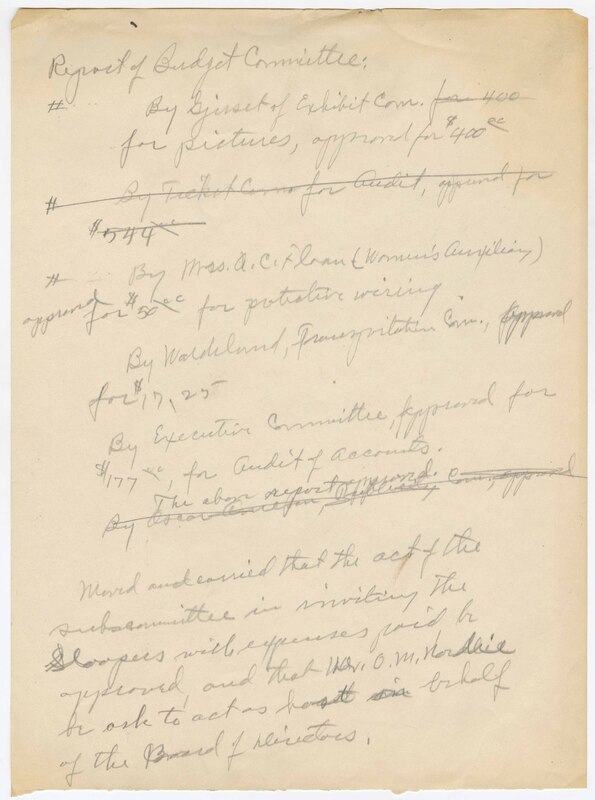 Report of Budget Committee:
# By Gjerset of Exhibit Com. for 400
for pictures, approved for $400 00
# By Ticket Com for Audit, approved for
$544 00
# By Mrs. A. C. Floan (Women's Auxiliary)
approved for $50 00 for potative wiring
By Waldeland, Transportation Com., Approved
for $17,25
By Executive Committee, Approved for
$177 00, for Audit of Accounts.
The above report approved.
By Oscar Com, approved
Moved and carried that the act of the
subcommittee in inviting the
Sloopers with expenses paid be
approved, and that Mr. O. M. Nordlie
be ask to act as host in behalf
of the Board of Directors.